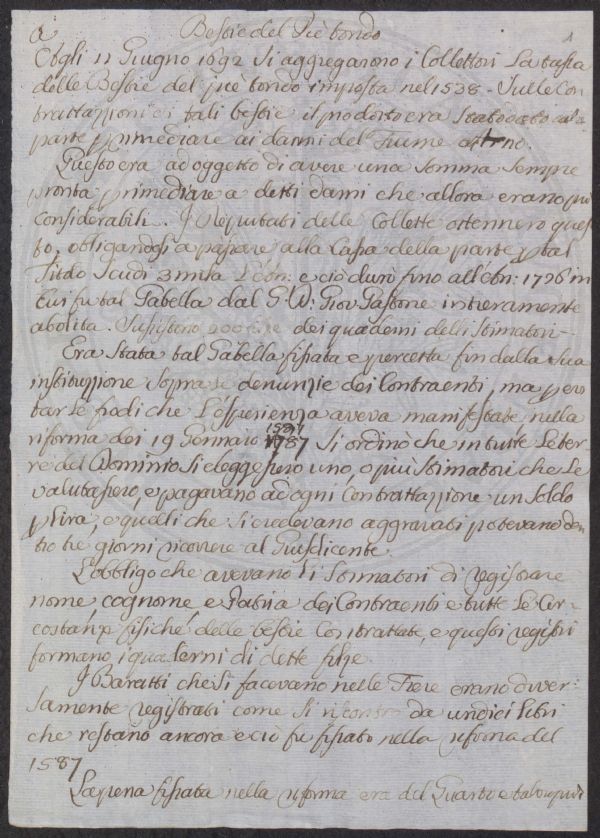 a Bestie del Piè tondo 1
Cogli 11 Giugno 1692 Si aggregarono i Collettori La tassa
delle Bestie del piè tondo imposta nel 1538 - Sulle Con
trattazioni di tali bestie il prodotto era Stato dato alla
parte p rimediare ai danni del Fiume
Questo era ad oggetto di avere una Somma Sempre
pronta p rimediare a detti danni che allora erano più
Considerabili. I Deputati delle Collette ottennero ques
to, obligandosi a passare alla Cassa della parte p tal
Titolo Scudi 3 mila e ciò durò fino all' 1726 in
Cui fu tal Gabella dal G. D: Giov Gastone intieramente
abolita. 200 filze dei quaderni delli Stimatori -
Era Stata tal Gabella fissata e percetta fin dalla Sua
instituzzione Sopra le denunzie dei Contraenti, ma p evi
tar le frodi che L'esperienza aveva manifestate, nella
riforma dei 19 Gennaio 1587 Si ordinò che in tutte Le ter
re del Dominio Si eleggessero uno, o più Stimatori che Le
valutassero, e pagavano ad ogni Contrattazzione un Soldo
p lira, e quelli che Si credevano aggravati potevano den
tro tre giorni ricorrere al Giusdicente
L'obbligo che avevano li Stimatori di registrare
nome, cognome e Patria dei Contraenti e tutte Le Cir-
costanze fisiche delle bestie Contrattate, e questi registri
formano i quaderni di dette filze
I Baratti che Si facevano nelle Fiere erano diver-
Samente registrati come Si riscontra da undici libri
che restano ancora e ciò fu fissato nella riforma del
1587
La pena fissata nella riforma era del Quarto e talor più